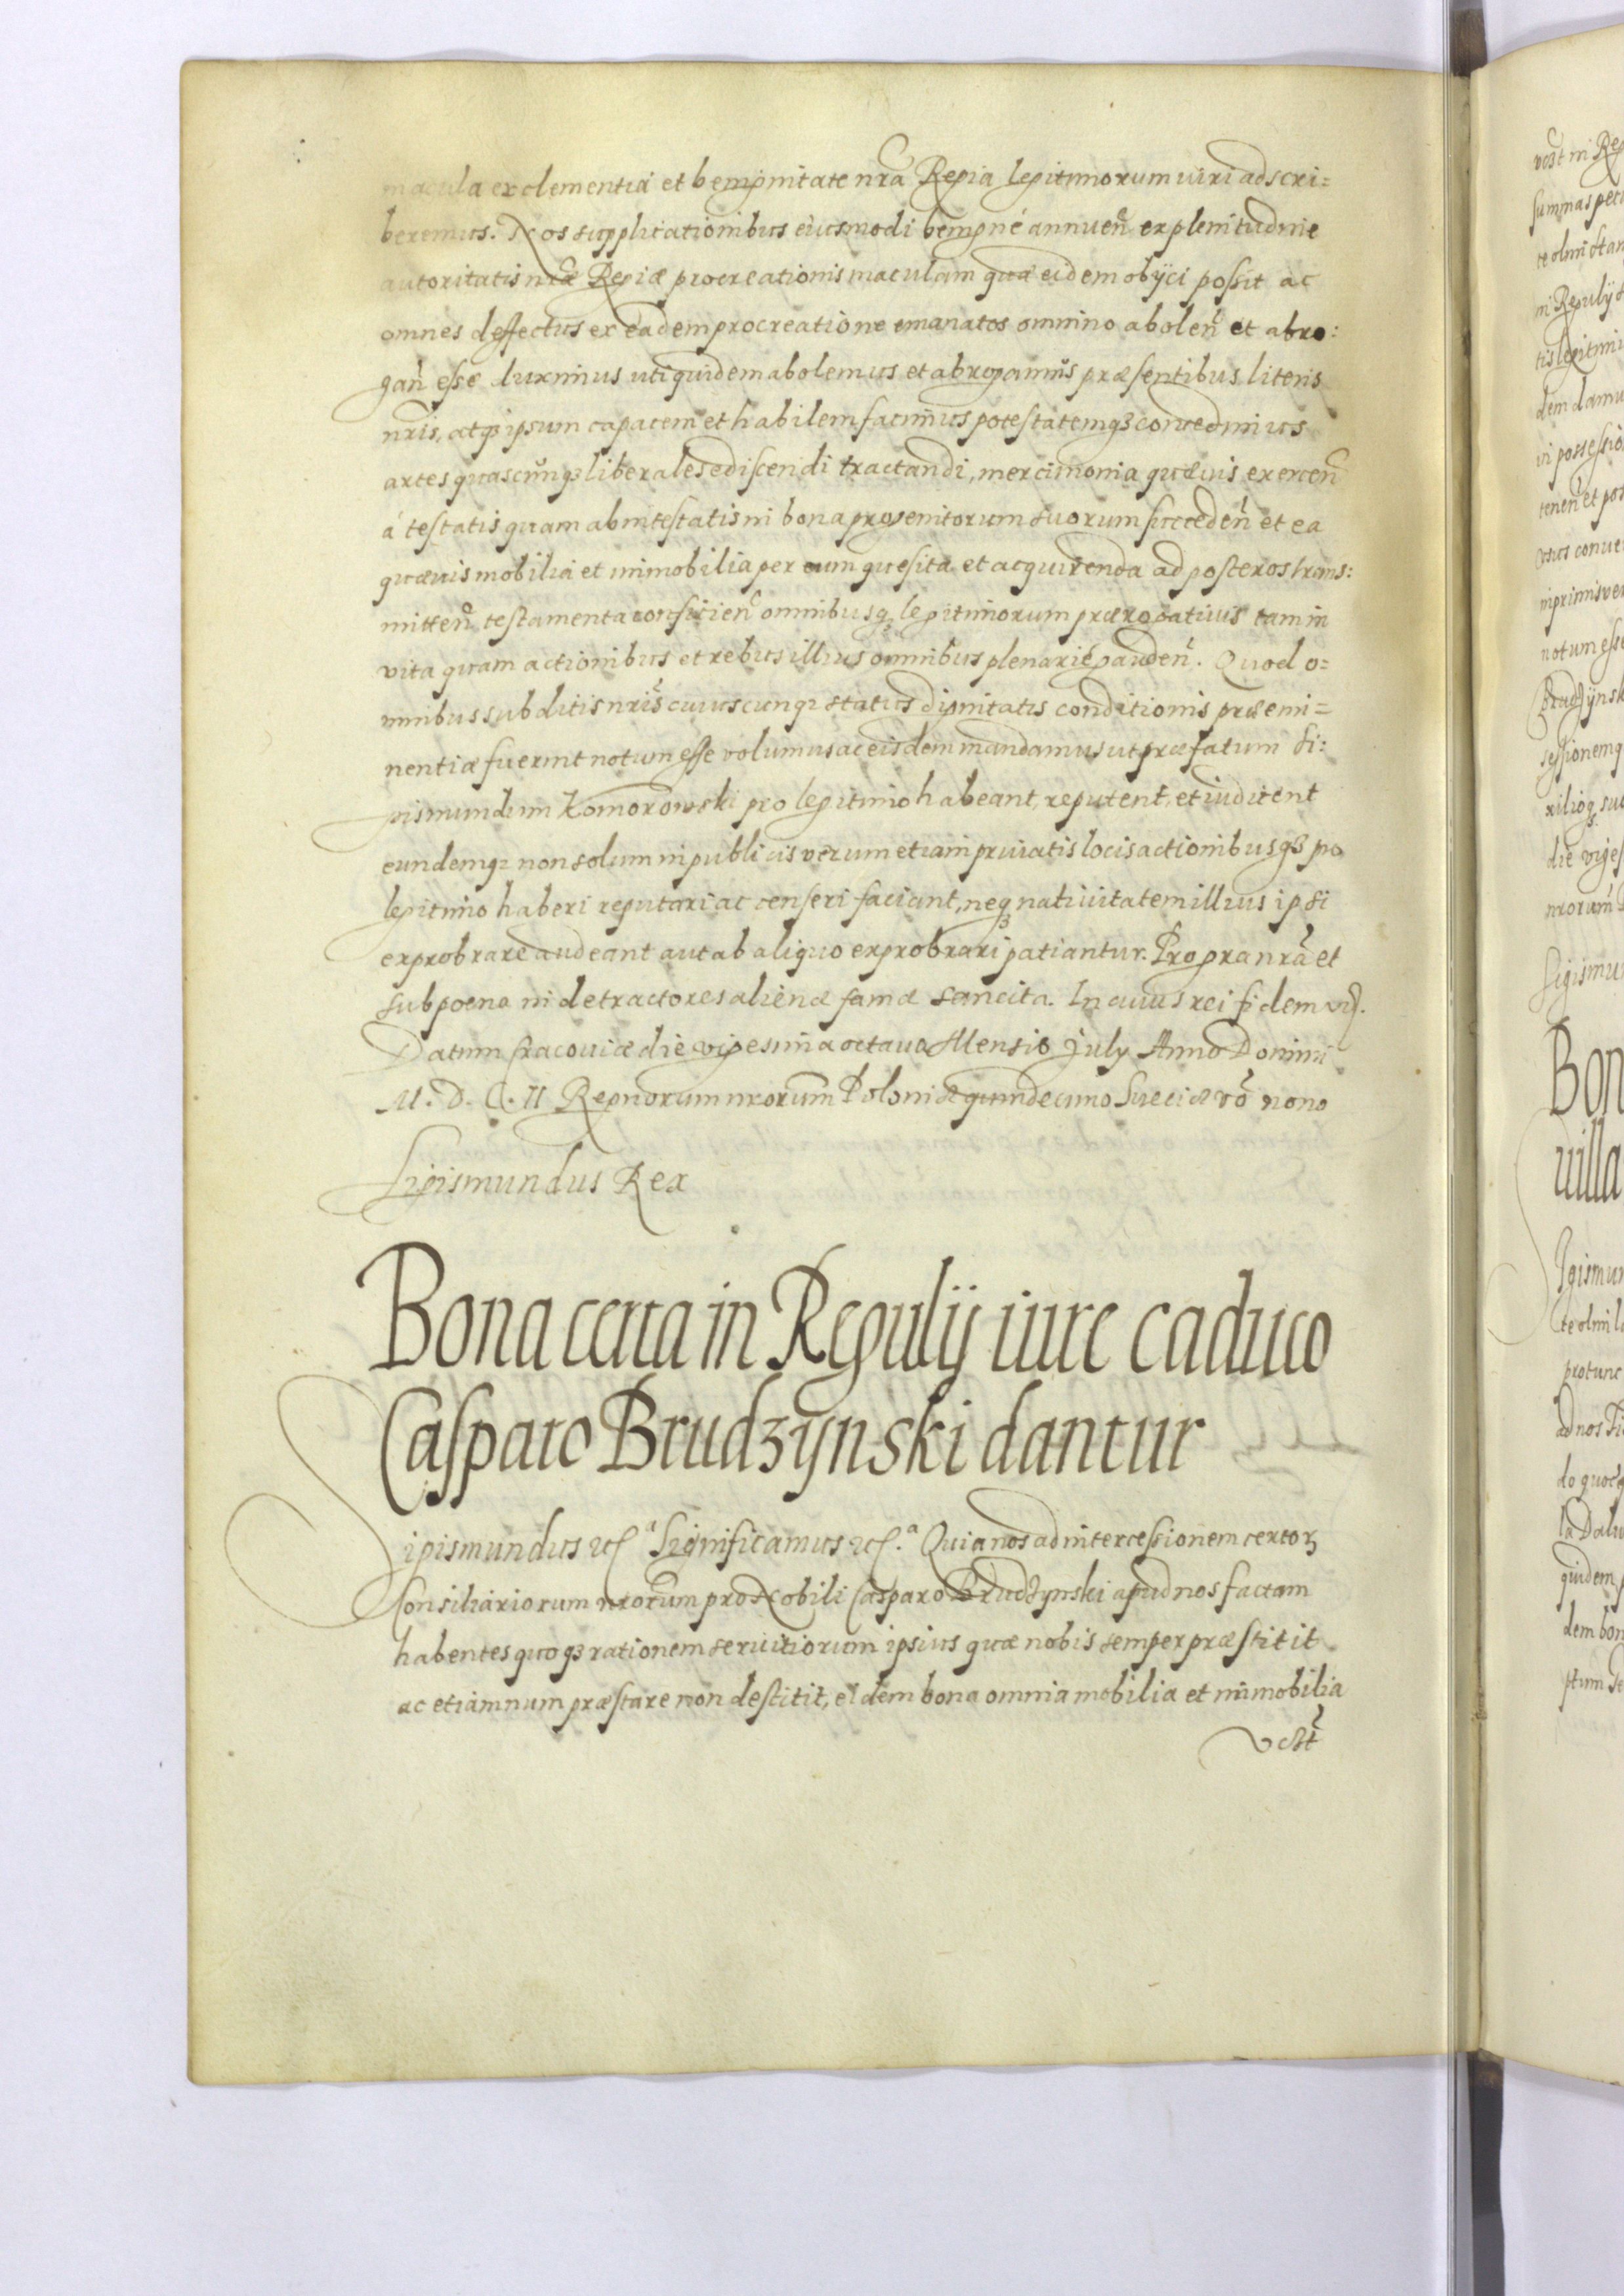 macula ex clementia et benignitate nrã Regia legitimorum viri adscri=
beremus. Nos supplicationibus eiusmodi benigne annueñ ex plenitudine
autoritatis nrãe Regiæ procreationis maculam quæ eidem obijci possit ac
omnes deffectus ex eadem procreatione emanatos omnino aboleñ et abro:
gañ esse duximus uti quidem abolemus et abrogamus præsentibus literis
nris, atq3 ipsum capacem et habilem facimus potestatemq3 concedimus
artes quascunq3 liberales ediscendi tractandi, mercimonia quævis exerceñ
á testatis quam ab intestatis in bona progenitorum suorum succedeñ et ea
quævis mobilia et immobilia per eum quesita et acquirenda ad posteros trans:
mitteñ testamenta conficieñ omnibusq3 legitimorum prærogativis tam in
vita quam actionibus et rebus illius omnibus plenarié gaudeñ. Quod o=
mnibus subditis nris cuiuscunq3 status dignitatis conditionis præemi=
nentiæ fuerint notum esse volumus ac eisdem mandamus ut præfatum Si:
gismundum Komorowski pro legitimo habeant, reputent, et iudicent
eundemq3 non solum in publicis verum etiam privatis locis actionibusq3 pro
legitimo haberi reputari ac censeri faciant, neq3 nativitatem illius ipsi
exprobrare audeant aut ab aliquo exprobrari patiantur. Pro gra nrã et
sub poena in detractores alienæ famæ sancita. In cuius rei fidem
Datum Cracoviæ die vigesima octava Mensis July Anno Domini
M. D. C. II Regnorum nrorum Poloniæ quindecimo Sueciæ võ nono
Sigismundus Rex
Bona certa in Regulij iure caduco
Casparo Brudzynski dantur
Sigismundus etc.ª Significamus etc.ª Quia nos ad intercessionem certorꝫ
Consiliariorum nrorum pro Nobili Casparo Brudzynski apud nos factam
habentes quoq3 rationem servitiorum ipsius quæ nobis semper præstitit
ac etiamnum præstare non destitit, eidem bona omnia mobilia et immobilia